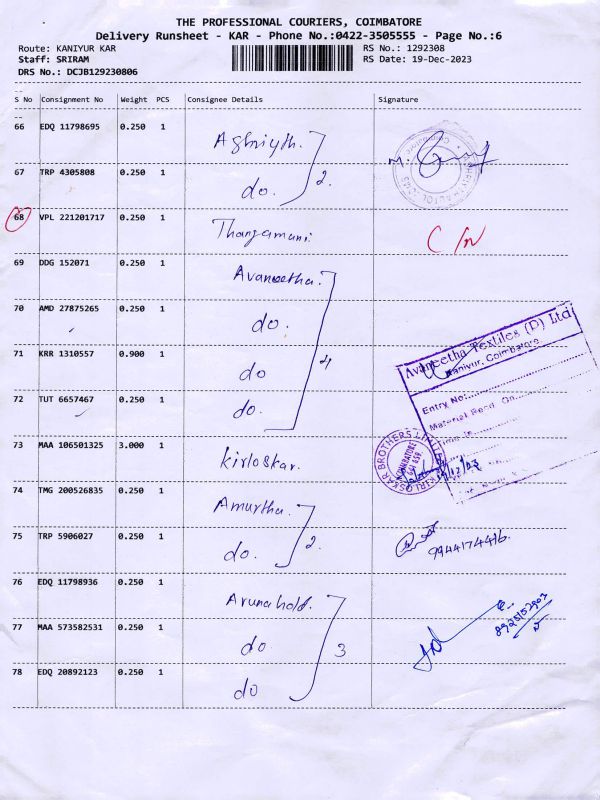 THE PROFESSIONAL COURIERS, COIMBATORE
Delivery Runsheet - KAR - Phone No.:0422-3505555 - Page No.:6
Route: KANIYUR KAR RS No.: 1292308
Staff: SRIRAM RS Date: 19-Dec-2023
DRS No.: DCJB129230806
S No Consignment No Weight PCS Consignee Details Signature
66 EDQ 11798695 0.250 1
67 TRP 4305808 0.250 1 do. 2.
68 VPL 221201717 0.250 1 Thangamani. C/N
69 DDG 152071 0.250 1 Avaneetha.
70 AMD 27875265 0.250 1 do.
71 KRR 1310557 0.900 1 do 4
72 TUT 6657467 0.250 1 do.
Avaneetha Textiles (D) Ltd
Kaniyur, Coimbatore
Entry No:
Material Recd On
73 MAA 106501325 3.000 1 Kirloskar.
KIRLOSKAR BROTHERS LIMITED
74 TMG 200526835 0.250 1 Amurtha.
75 TRP 5906027 0.250 1 do. 2. 9944174416.
76 EDQ 11798936 0.250 1 Arunahold.
77 MAA 573582531 0.250 1 do 3
78 EDQ 20892123 0.250 1 do